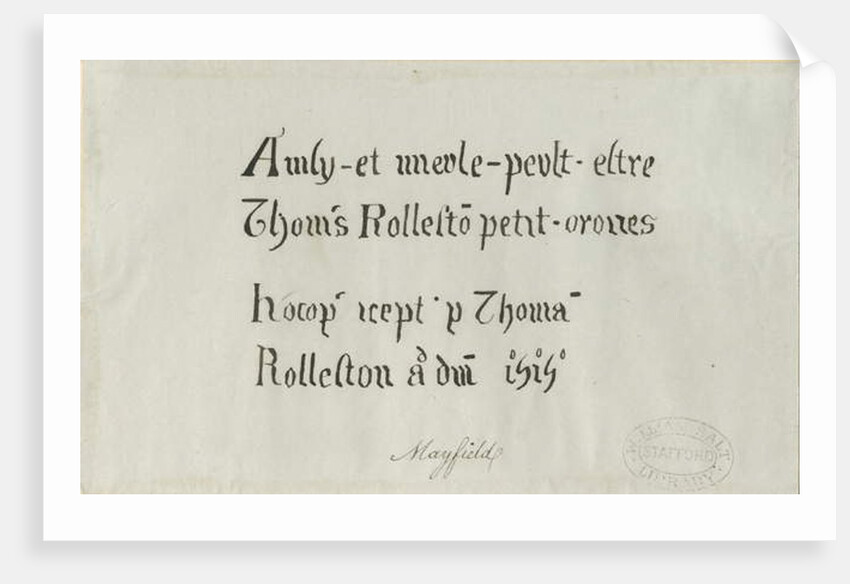 Ainsy-et mevle-pevlt-estre
Thom̄s Rollestō petit-oroues
hocop' icept p Thoma
Rolleston ao dm̄ i5i5
Mayfield
WILLIAM SALT
STAFFORD
LIBRARY